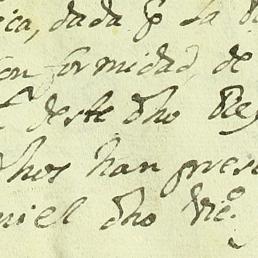 ica, dada p la
conformidad, de
deste dho Rey
dhos han prese
niel dho Vic.º